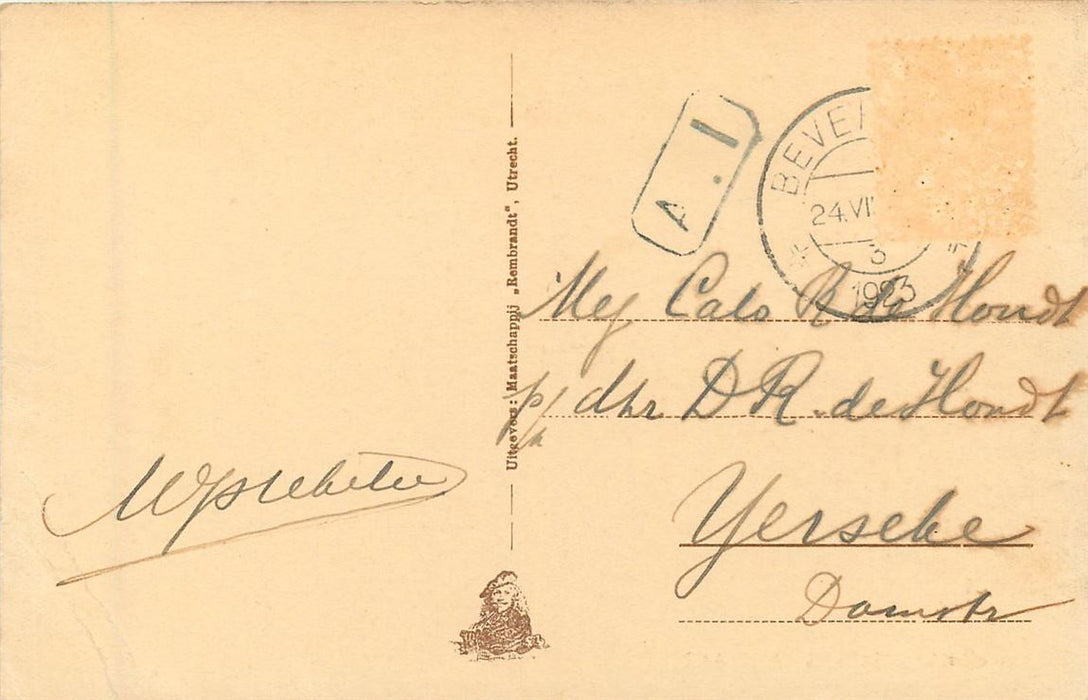 A. I
24.VI
3
1923
Mej Cato R de Hondt
p/a dhr D R. de Hondt
Yerseke
Damstr
Uitgevers: Maatschappij „Rembrandt", Utrecht.